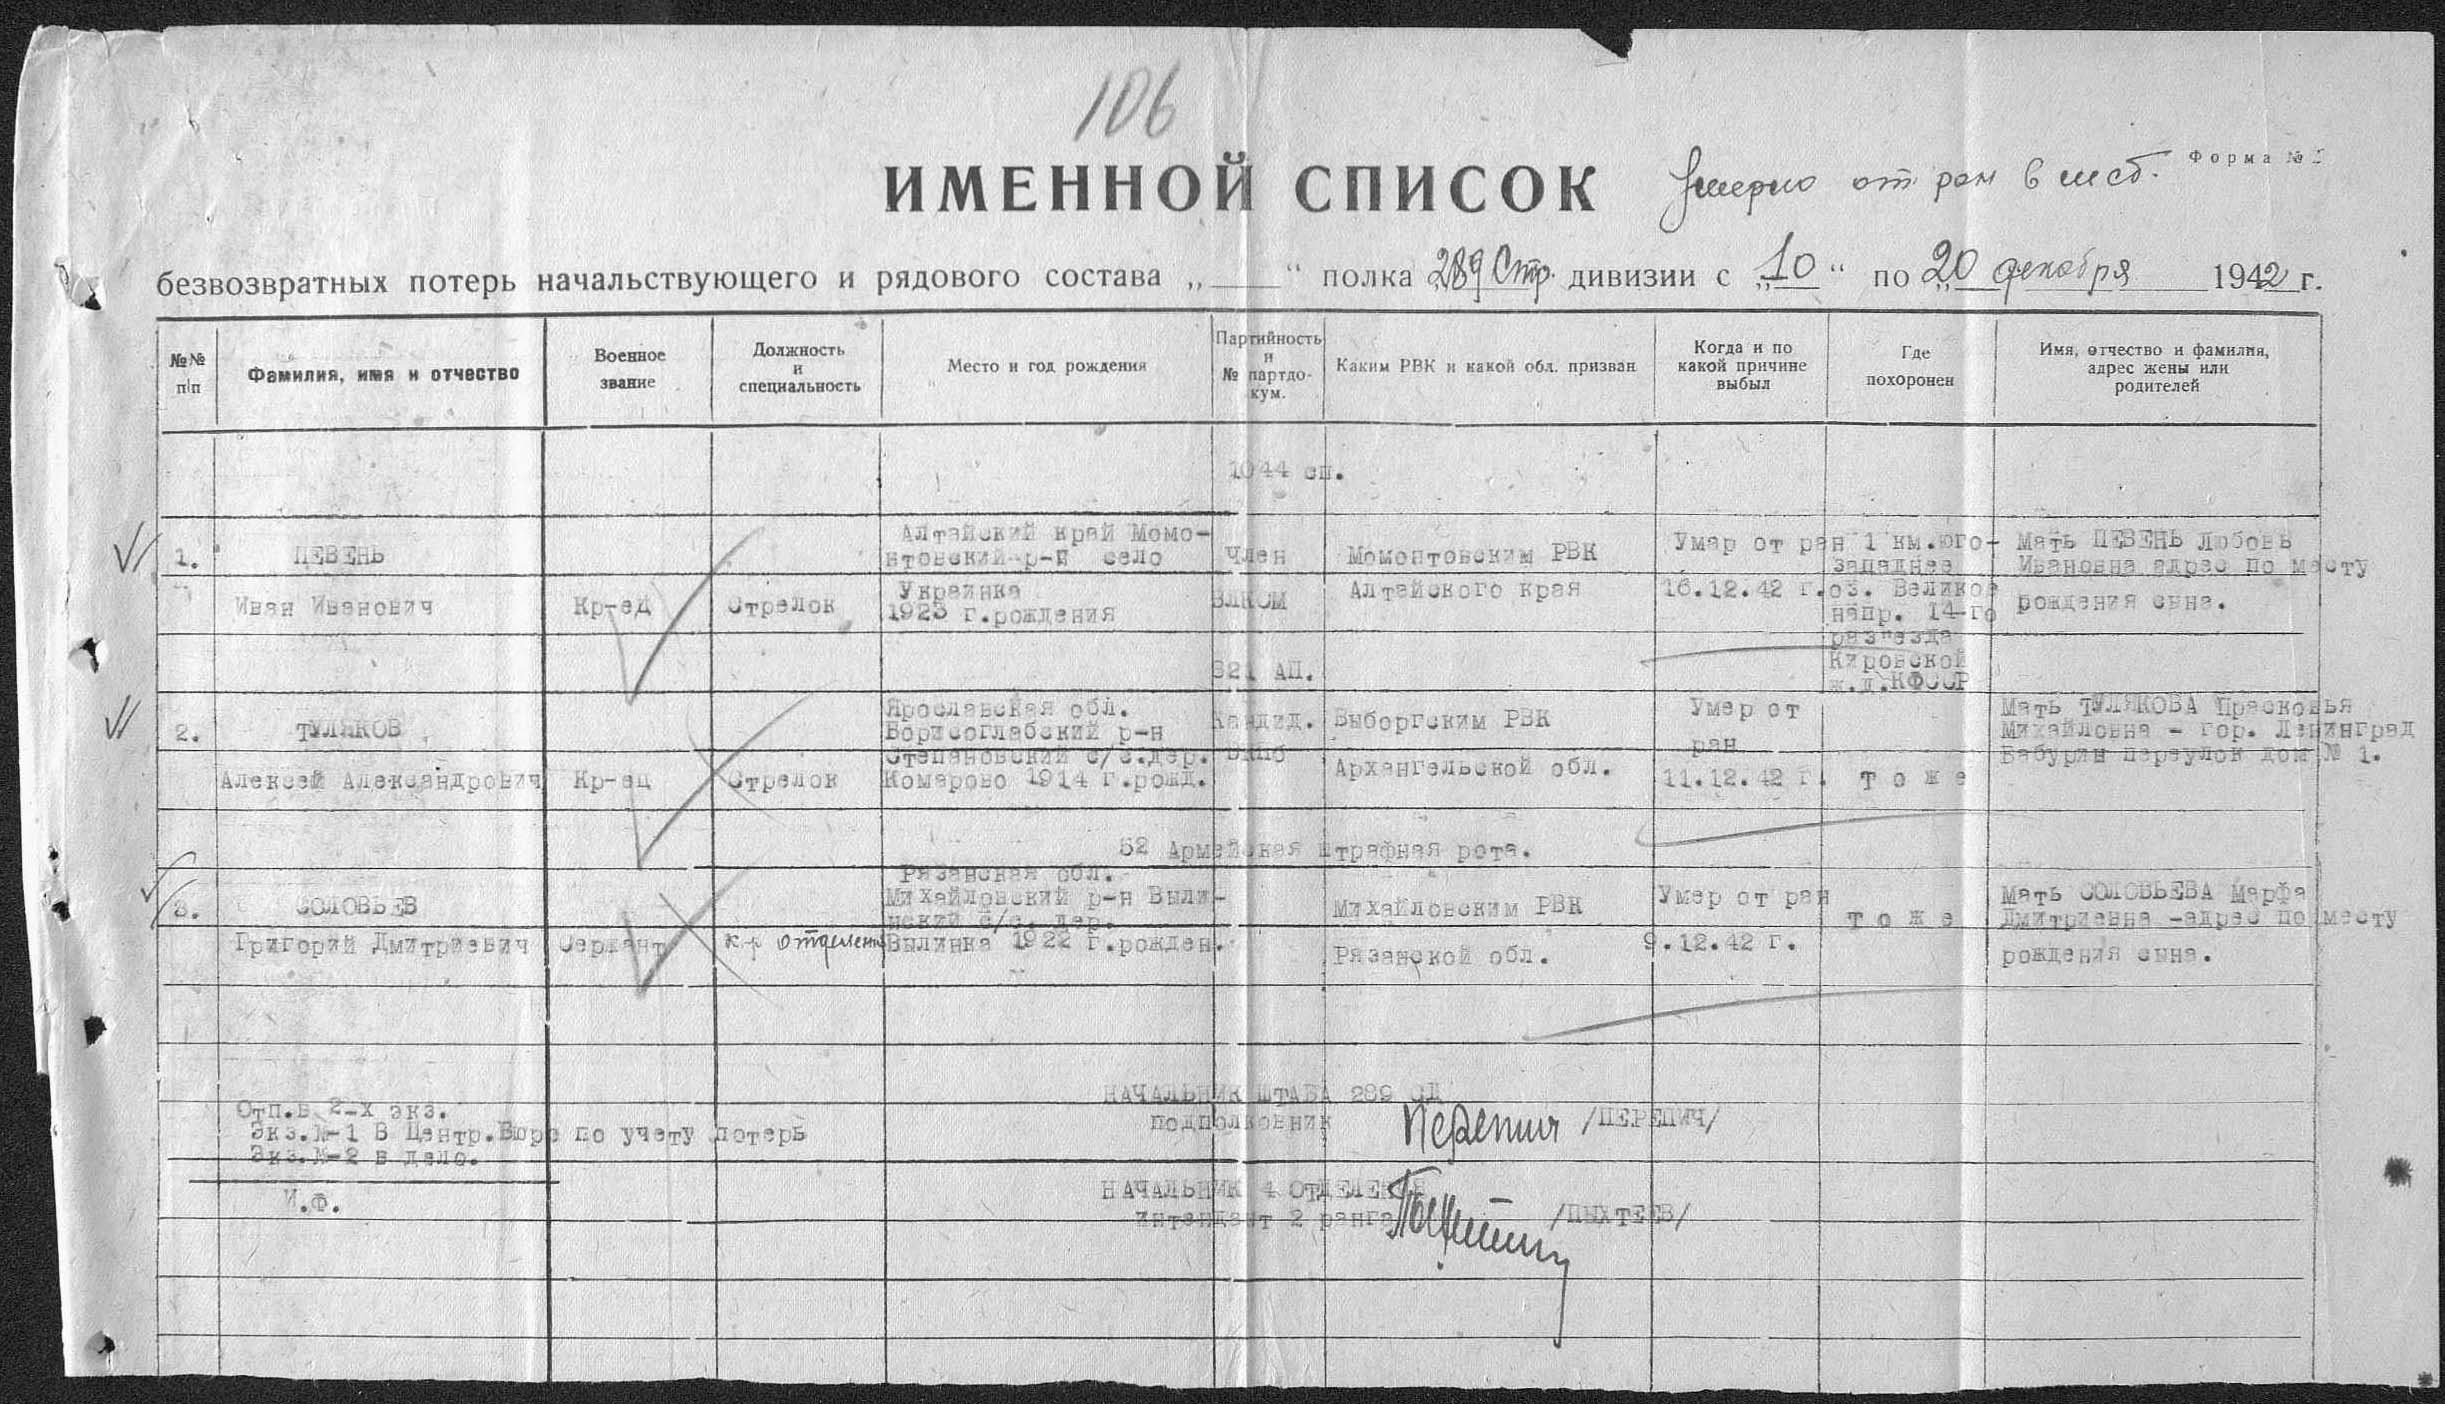 106
ИМЕННОЙ СПИСОК
от ран в мсб.
Форма №
безвозвратных потерь начальствующего и рядового состава „ “ полка 289 Стр. дивизии с „10“ по „20 декабря 1942 г.
№№ п\п
Фамилия, имя и отчество
Военное звание
Должность и специальность
Место и год рождения
Партийность и № партдокум.
Каким РВК и какой обл. призван
Когда и по какой причине выбыл
Где похоронен
Имя, отчество и фамилия, адрес жены или родителей
1044 сп.
1.
ПЕВЕНЬ
Иван Иванович
Кр-ец
Стрелок
Алтайский край Момо-
нтовский р-н село
Украинка
1923 г.рождения
Член
ВЛКСМ
Момонтовским РВК
Алтайского края
Умар от ран
16.12.42 г.
1 км.юго-
западнее
оз. Великое
напр. 14-го
раз"езда
Кировской
ж.д.КФССР
Мать ПЕВЕНЬ Любовь
Ивановна адрес по месту
рождения сына.
821 АП.
2.
ТУЛЯКОВ
Алексей Александрович
Кр-ец
Стрелок
Ярославская обл.
Борисоглабский р-н
Степановский с/с.дер.
Комарово 1914 г.рожд.
Кандид.
ВКПб
Выборгским РВК
Архангельской обл.
Умер от
ран
11.12.42 г.
т о ж е
Мать ТУЛЯКОВА Прасковья
Михайловна - гор. Ленинград
Бабурин переулок дом № 1.
52 Армейская штрафная рота.
3.
СОЛОВЬЕВ
Григорий Дмитриевич
Сержант
к-р отделения
Рязанская обл.
Михайловский р-н Выли-
нский с/с. дер.
Вылинка 1922 г.рожден.
Михайловским РВК
Рязанской обл.
Умер от ран
9.12.42 г.
т о ж е
Мать СОЛОВЬЕВА Марфа
Дмитриевна -адрес по месту
рождения сына.
НАЧАЛЬНИК ШТАБА 289 СД
подполковник Перепич /ПЕРЕПИЧ/
Отп.в 2-х экз.
Экз.№-1 В Центр.Бюро по учету потерь
Экз.№-2 в дело.
И.Ф.
НАЧАЛЬНИК 4 ОТДЕЛЕНИЯ
интендант 2 ранга /ПЫХТЕЕВ/